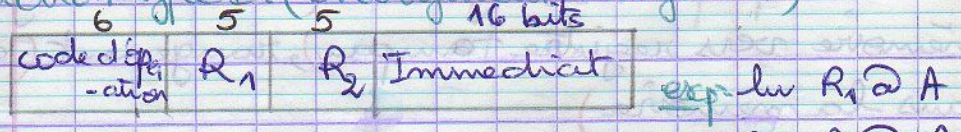 6 5 5 16 bits
code d'opér
-ation R1 R2 Immediat
exp: lw R1 @ A